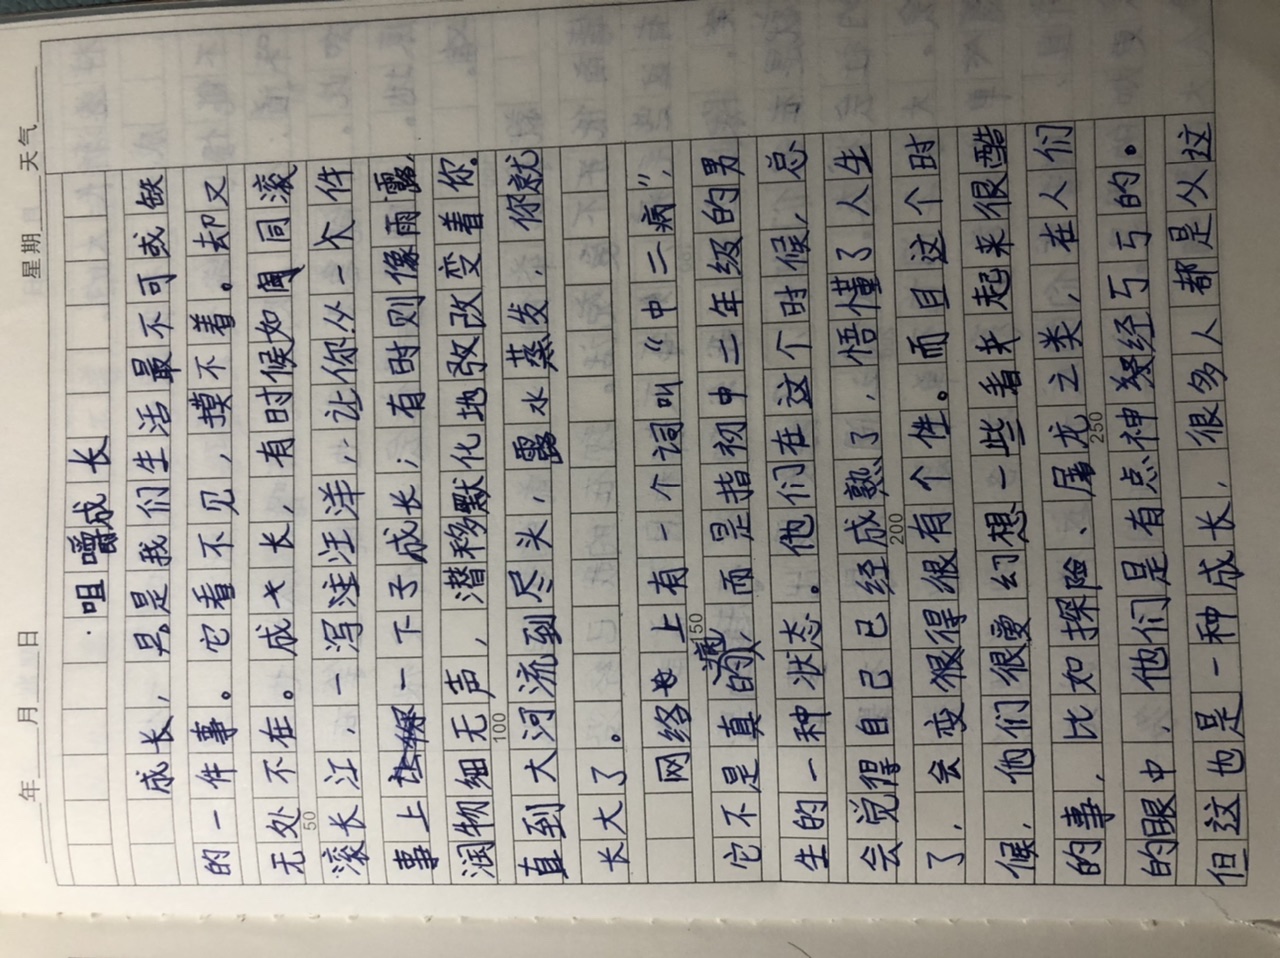 年 月 日 星期 天气
咀嚼成长
成长，是我们生活最不可或缺
的一件事。它看不见，摸不着。却又
无处不在。成长，有时候如同滚
滚长江，一泻汪洋，让你从一个件
事上一下子成长；有时则像雨露，
润物细无声，潜移默化地改变着你。
直到大河流到尽头，露水蒸发，你就
长大了。
网络上有一个词叫“中二病”，
它不是真的病，而是指初中二年级的男
生的一种状态。他们在这个时候，总
会觉得自己已经成熟了，悟懂了人生
了，会变得很有个性。而且这个时
候，他们很爱幻想一些看起来很酷
的事，比如探险、屠龙之类，在人们
的眼中，他们是有点神经兮兮的。
但这也是一种成长，很多人都是从这
50
100
150
200
250